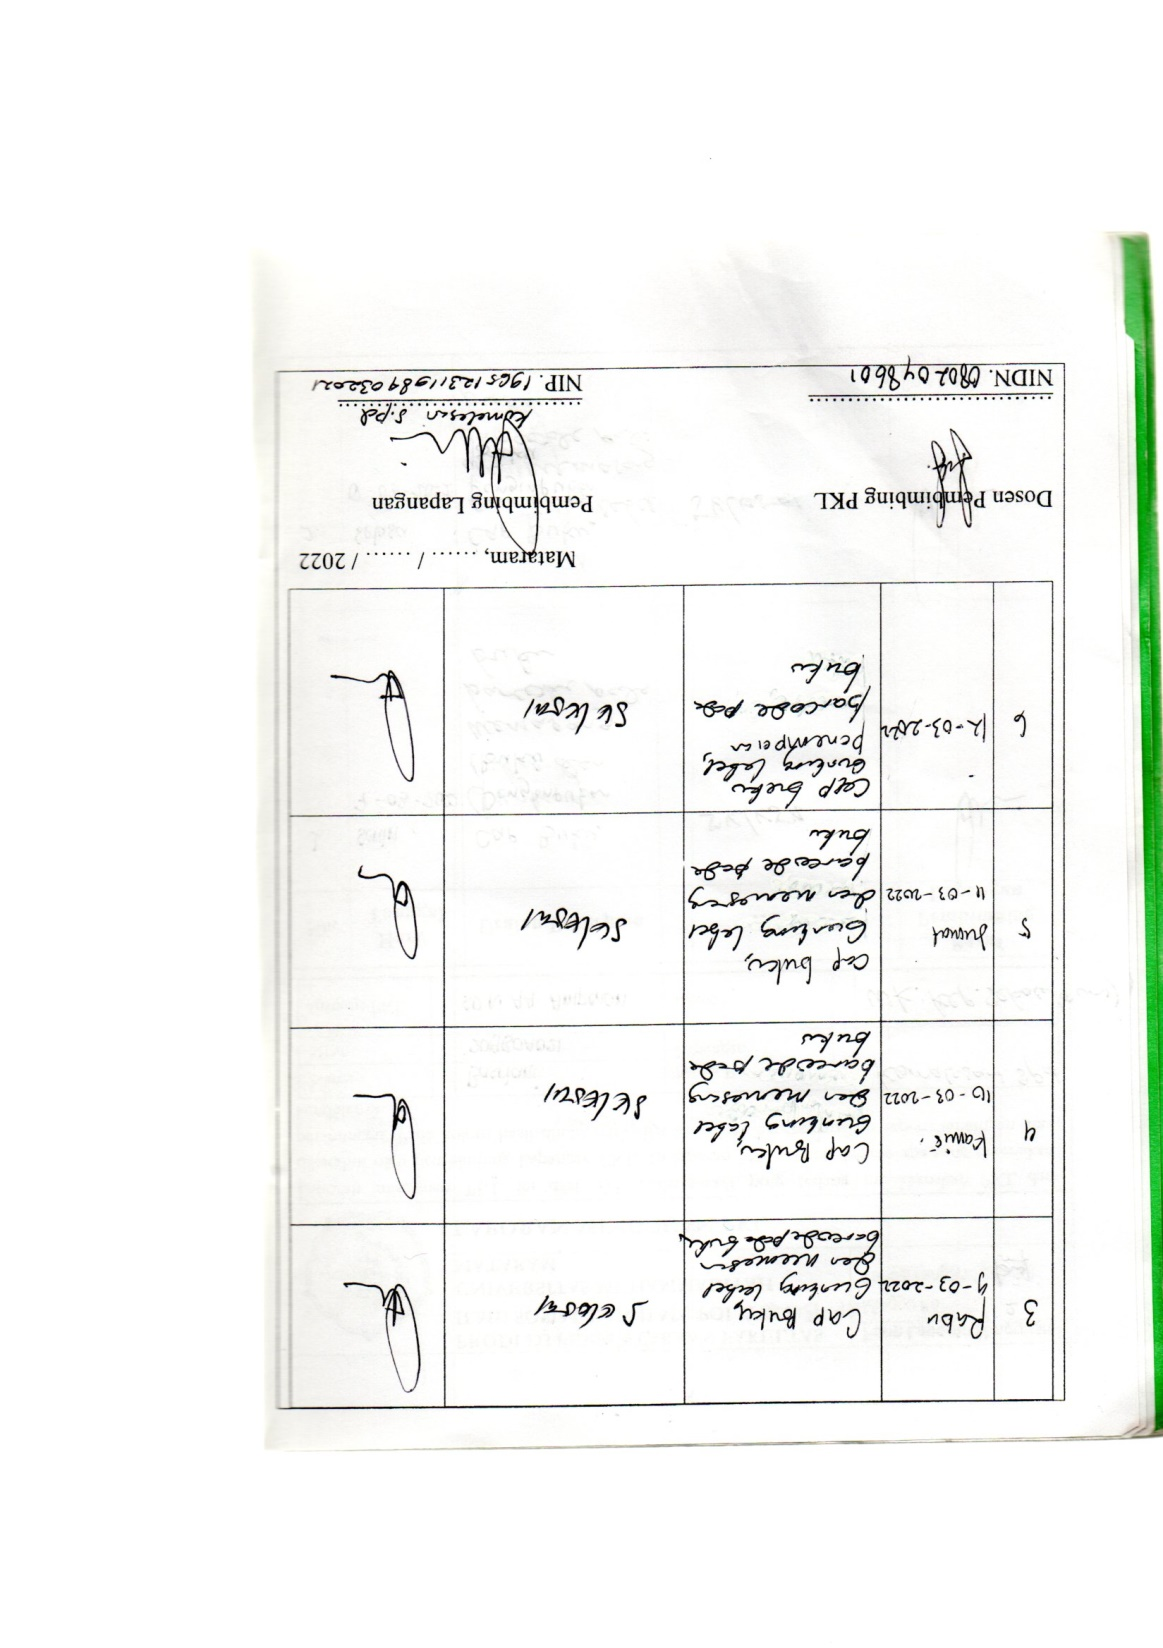 3
Rabu
9-03-2022
Cap Buku,
Gunting label
dan
barcode pada buku,
Selesai
4
Kamis
10-03-2022
Cap Buku,
Gunting label
dan memasang
barcode pada
buku
Selesai
5
Jumat
11-03-2022
Cap buku,
Gunting label
dan memasang
barcode pada
buku
Selesai
6
12-03-2022
Cap buku
Gunting label,
barcode pada
buku
Selesai
Mataram, ...... / ...... / 2022
Dosen Pembimbing PKL
Pembimbing Lapangan
S.Pd
NIDN. 0802048601
NIP. 196512311989032021